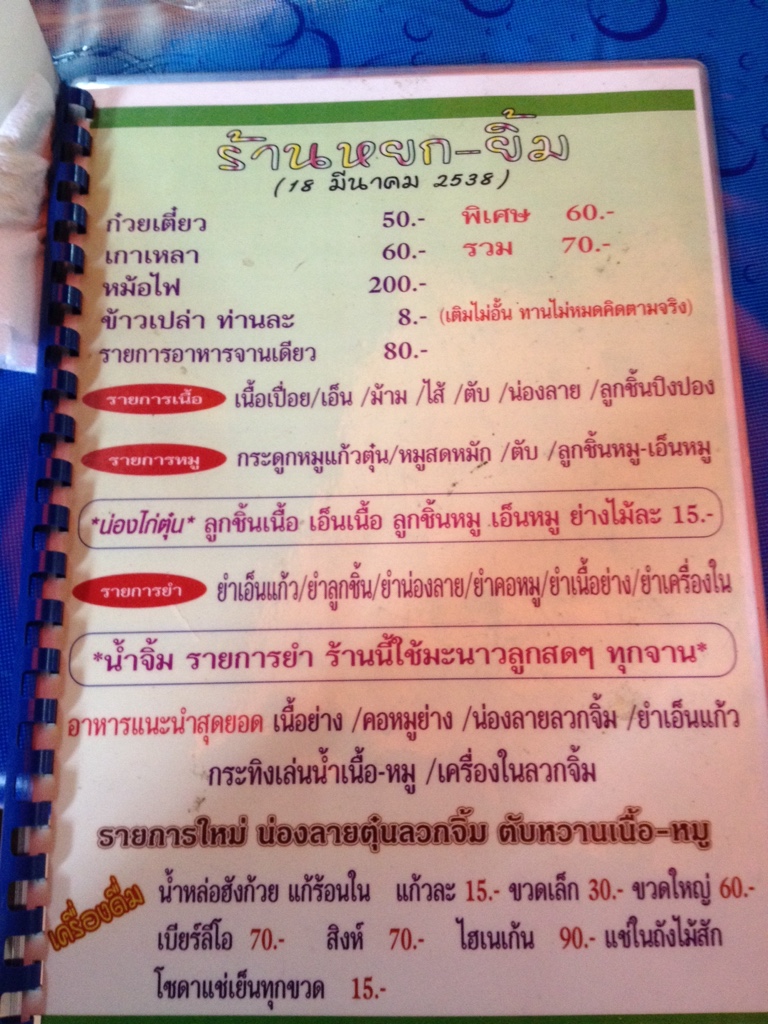 ร้านหยก-ยิ้ม
(18 มีนาคม 2538)
ก๋วยเตี๋ยว 50.- พิเศษ 60.-
เกาเหลา 60.- รวม 70.-
หม้อไฟ 200.-
ข้าวเปล่า ท่านละ 8.- (เติมไม่อั้น ทานไม่หมดคิดตามจริง)
รายการอาหารจานเดียว 80.-
รายการเนื้อ เนื้อเปื่อย/เอ็น /ม้าม /ไส้ /ตับ /น่องลาย /ลูกชิ้นปิงปอง
รายการหมู กระดูกหมูแก้วตุ๋น/หมูสดหมัก /ตับ /ลูกชิ้นหมู-เอ็นหมู
*น่องไก่ตุ๋น* ลูกชิ้นเนื้อ เอ็นเนื้อ ลูกชิ้นหมู เอ็นหมู ย่างไม้ละ 15.-
รายการยำ ยำเอ็นแก้ว/ยำลูกชิ้น/ยำน่องลาย/ยำคอหมู/ยำเนื้อย่าง/ยำเครื่องใน
*น้ำจิ้ม รายการยำ ร้านนี้ใช้มะนาวลูกสดๆ ทุกจาน*
อาหารแนะนำสุดยอด เนื้อย่าง /คอหมูย่าง /น่องลายลวกจิ้ม /ยำเอ็นแก้ว
กระทิงเล่นน้ำเนื้อ-หมู /เครื่องในลวกจิ้ม
รายการใหม่ น่องลายตุ๋นลวกจิ้ม ตับหวานเนื้อ-หมู
เครื่องดื่ม น้ำหล่อฮังก้วย แก้ร้อนใน แก้วละ 15.- ขวดเล็ก 30.- ขวดใหญ่ 60.-
เบียร์ลีโอ 70.- สิงห์ 70.- ไฮเนเก้น 90.- แช่ในถังไม้สัก
โซดาแช่เย็นทุกขวด 15.-